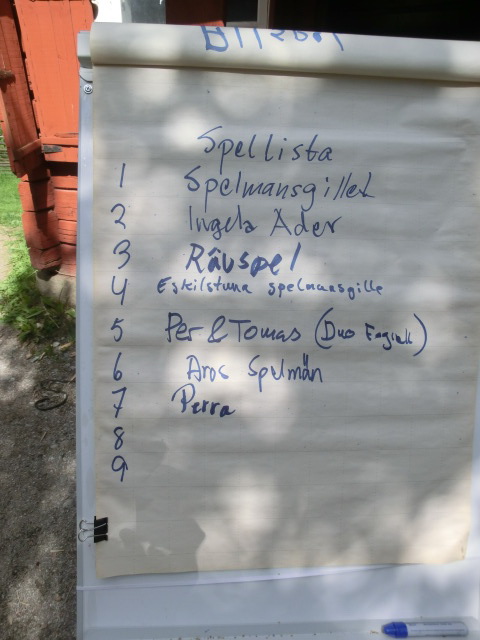 Spellista
1 Spelmansgillet
2 Ingela Ader
3 Rävspel
4 Eskilstuna spelmansgille
5 Per & Tomas (Duo
6 Aros Spelmän
7 Perra
8
9